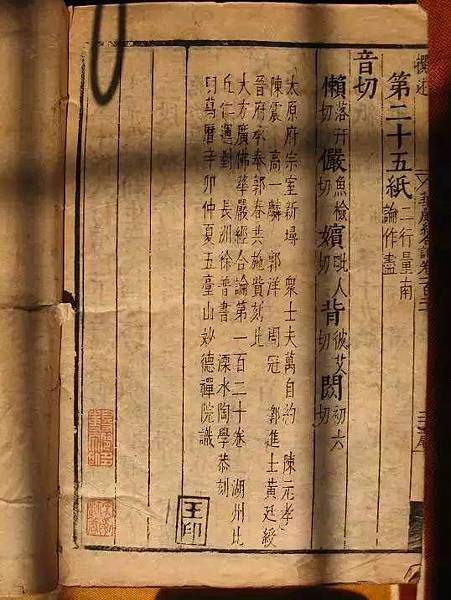 撰述
第二十五紙 二行量南
論作盡
音切
懶落旱切 儼魚檢切 嬪毗人切 背彼艾切 閦初六切
太原府宗室新 衆士夫萬自約 陳元孝
陳震 高一麟 郭洋 周冠 郭進士黃廷綬
晉府承奉郭春共施貲刻此
大方廣佛華嚴經合論第一百二十卷 湖州比
丘仁運對 長洲徐普書 溧水陶學恭刻
萬曆辛卯仲夏五臺山妙德禪院識
王印